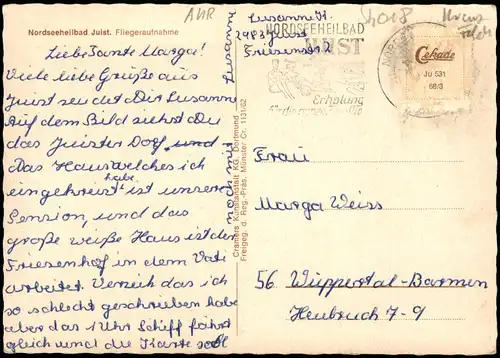 Nordseeheilbad Juist. Fliegeraufnahme
AHR
Susanne H.
2983 Juist
Friesenstr. 2
NORDSEEHEILBAD
JUIST
Erholung
Cekade
JU 531
68/3
Liebe Tante Marga!
Viele liebe Grüße aus
Juist sendet Dir Susanne
Auf dem Bild siehst Du
das Juister Dorf und
Das Haus welches ich
habe
eingekreist ist unsere
Pension, und das
große weiße Haus ist der
Friesenhof in dem Vati
arbeitet. Verzeih das ich
so schlecht geschrieben habe
aber das 1 Uhr Schiff fährt
gleich und die Karte soll
noch mit
Susanne
Cramers Kunstanstalt KG. Dortmund
Freigeg. d. Reg.-Präs. Münster Cr. 1131/62
Frau
Marga Weiss
56 Wuppertal-Barmen
Heubruch 7-9